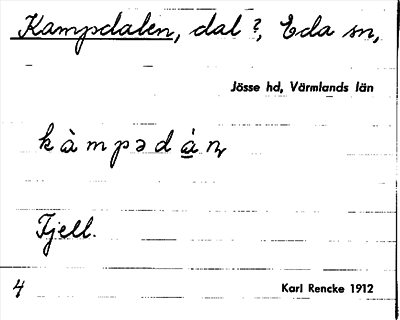 Kampdalen, dal ?, Eda sn,
Jösse hd, Värmlands län
k à m p ə d á̲ ṇ
Fjell.
4
Karl Rencke 1912